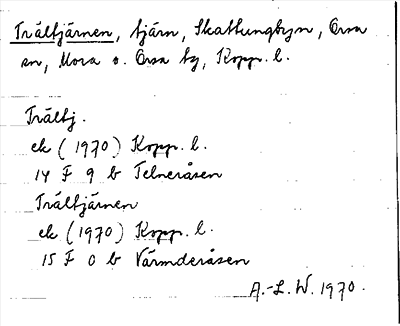 Trältjärnen, tjärn, Skattungbyn, Orsa
sn, Mora o. Orsa tg, Kopp. l.
Trältj.
ek (1970) Kopp. l.
14 F 9 b Telneråsen
Trältjärnen
ek (1970) Kopp. l.
15 F 0 b Värmderåsen
A.-L. W. 1970.